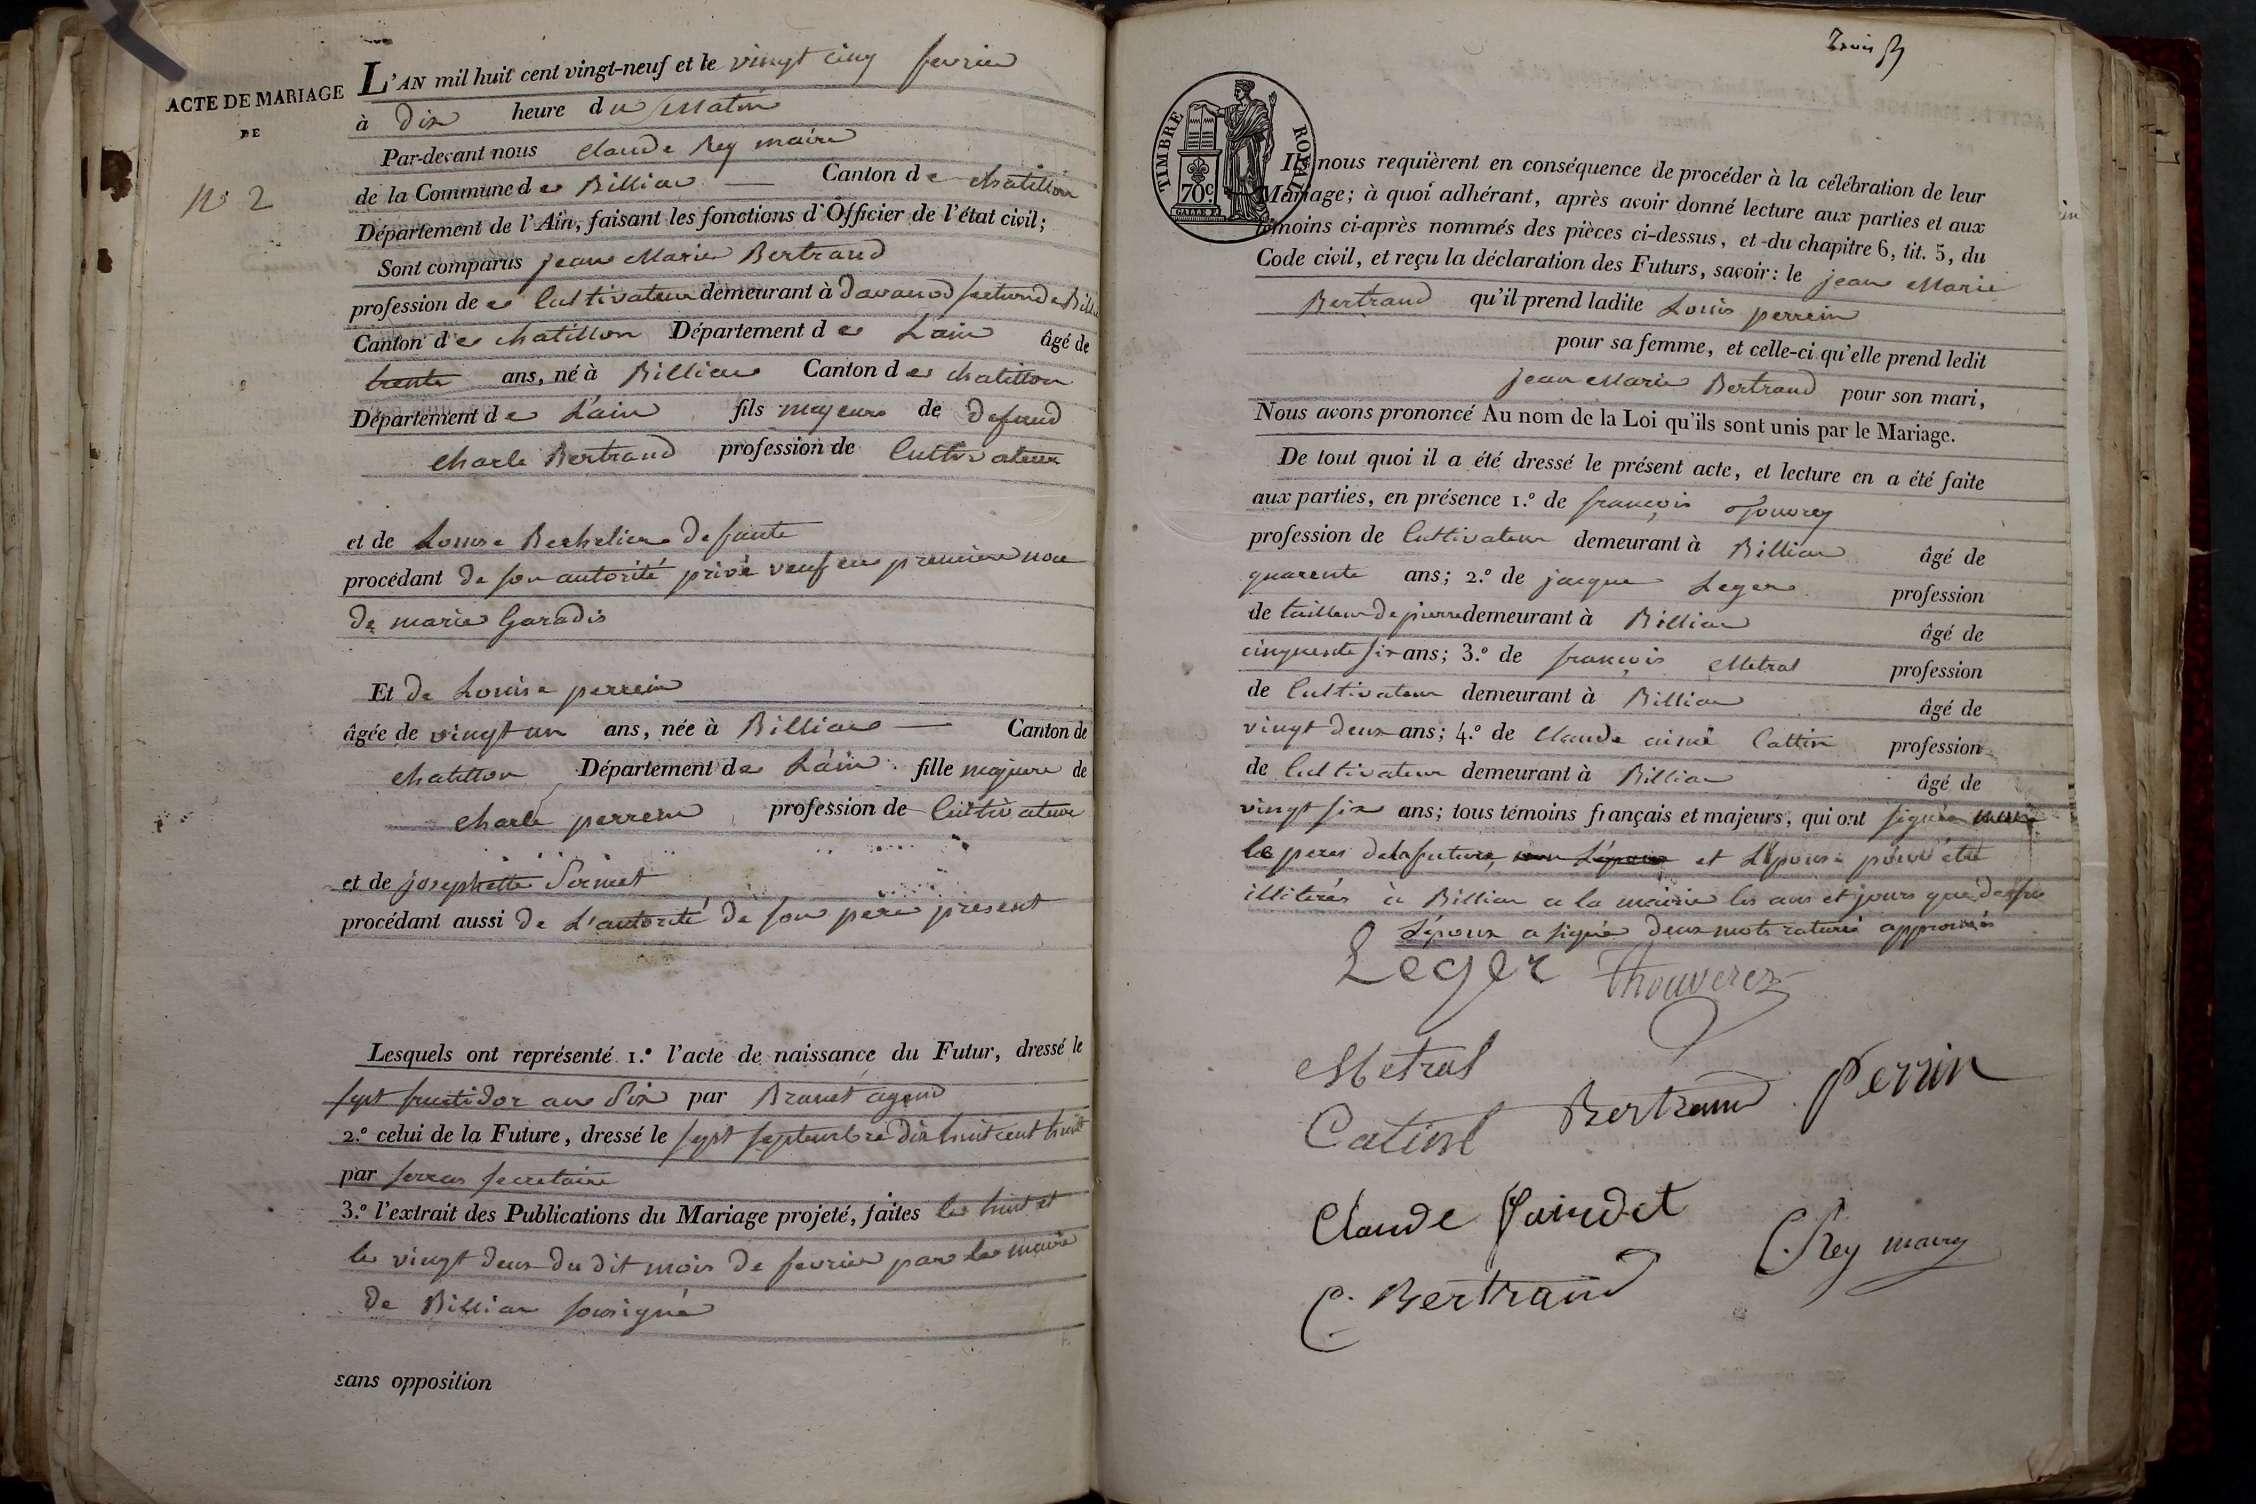 ACTE DE MARIAGE
DE
N° 2
L'AN mil huit cent vingt-neuf et le vingt cinq fevrier
à dix heure du Matin
Par-devant nous Claude Rey maire
de la Commune de Billiac — Canton de chatillon
Département de l'Ain, faisant les fonctions d'Officier de l'état civil;
Sont comparus jean Marie Bertrand
profession de Cultivateur demeurant à davanod section de Bill
Canton de chatillon Département de L'ain âgé de
trente ans, né à Billiac Canton de chatillon
Département de L'ain fils majeur de defund
Charle Bertrand profession de Cultivateur
et de Louise defunte
procédant de son autorité privé veuf en premiere noce
de marie Garadis
Et de Louise perrein
âgée de vingt un ans, née à Billiac — Canton de
chatillon Département de L'ain fille majeure de
Charle perrein profession de Cultivateur
et de josephette
procédant aussi de L'autorité de son père present
Lesquels ont représenté 1.° l'acte de naissance du Futur, dressé le
sept fructidor an Six par Brunet agend
2.° celui de la Future, dressé le sept septembre dix huit cent huit
par serras secretaire
3.° l'extrait des Publications du Mariage projeté, faites le huit et
le vingt deux du dit mois de fevrier par le maire
de Billiac sousigné
sans opposition
TIMBRE ROYAL
70c
Ils nous requièrent en conséquence de procéder à la célébration de leur
Mariage; à quoi adhérant, après avoir donné lecture aux parties et aux
témoins ci-après nommés des pièces ci-dessus, et du chapitre 6, tit. 5, du
Code civil, et reçu la déclaration des Futurs, savoir: le jean Marie
Bertrand qu'il prend ladite Louis perrein
pour sa femme, et celle-ci qu'elle prend ledit
jean Marie Bertrand pour son mari,
Nous avons prononcé Au nom de la Loi qu'ils sont unis par le Mariage.
De tout quoi il a été dressé le présent acte, et lecture en a été faite
aux parties, en présence 1.° de françois
profession de Cultivateur demeurant à Billiac âgé de
quarente ans; 2.° de jacque Leger profession
de tailleur de pierre demeurant à Billiac âgé de
cinquente six ans; 3.° de françois Metral profession
de Cultivateur demeurant à Billiac âgé de
vingt deux ans; 4.° de Claude aimé Cattin profession
de Cultivateur demeurant à Billiac âgé de
vingt six ans; tous témoins français et majeurs, qui ont signé
le pere de la future et L'épouse pour être
illiterés à Billiac a la mairie les ans et jours que dessus
L'époux a signé deux mots raturés approuvés
Leger Thouverez
Metral
Bertrand Perrin
Catinl
Claude
C. Rey maire
C. Bertrand